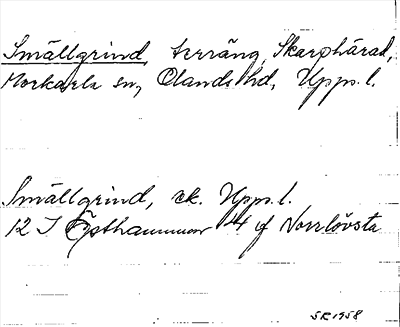 Smällgrind, terräng, Skarphärad,
Morkarla sn, Olands hd, Upps. l.
Smällgrind, ek. Upps. l.
12 I Östhammar 4 f Norrlövsta
SR 1958